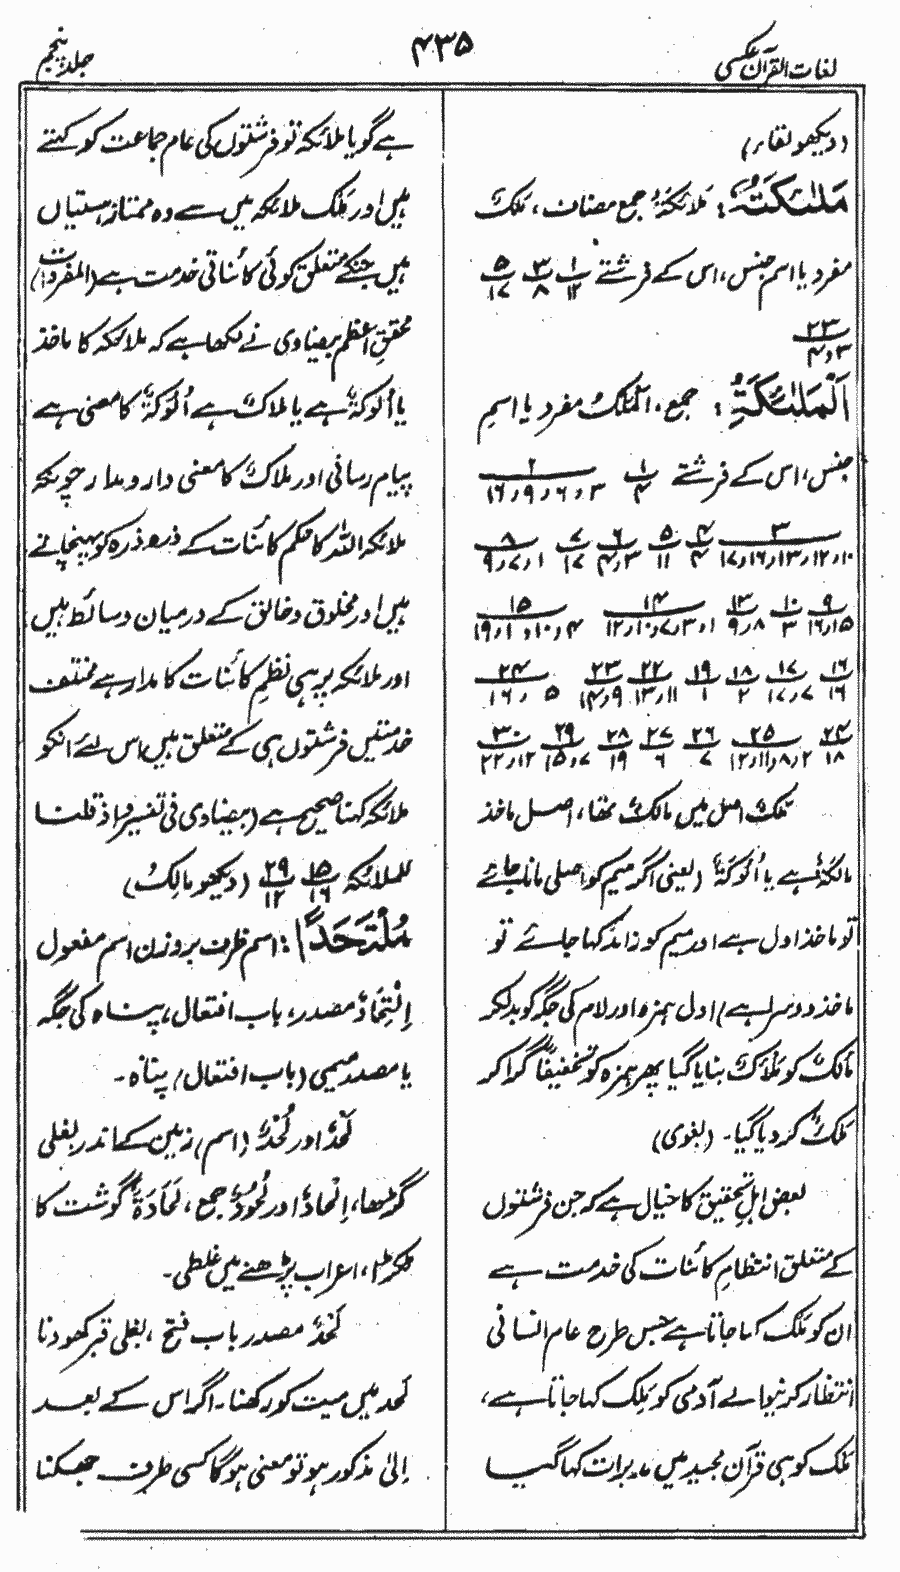 لغات القرآن عکسی
۴۳۵
جلد پنجم
(دیکھو لقاء)
مَلٰئِکَتُہٗ: مَلَائِکَۃُ جمع مضاف، مَلَکٌ
مفرد یا اسم جنس، اس کے فرشتے ۱/۱۲ ۳/۸ ۵/۱۷
۲۳/۳و۴
اَلْمَلٰئِکَۃِ: جمع، اَلْمَلَکُ مفرد یا اسمِ
جنس، اس کے فرشتے ۱/۴ ۲/۳و۶و۹و۱۶
۳/۱۰و۱۲و۱۳و۱۶و۱۷ ۴/۴ ۵/۱۱ ۶/۳و۴ ۷/۱۷ ۸/۱و۷و۹
۹/۱۵و۱۶ ۱۰/۳ ۱۳/۸و۹ ۱۴/۱و۳و۷و۱۰و۱۲ ۱۵/۴و۱۰و۱و۱۹
۱۶/۱۶ ۱۷/۷و۱۷ ۱۸/۲ ۱۹/۱ ۲۲/۱۱و۱۳ ۲۳/۹و۱۴ ۲۴/۵و۱۶
۲۴/۱۸ ۲۵/۲و۸و۱۱و۱۲ ۲۶/۷ ۲۷/۶ ۲۸/۱۹ ۲۹/۷و۱۵ ۳۰/۱۲و۲۲
مَلَکٌ اصل میں مالکٌ تھا، اصل ماخذ
مالکۃٌ ہے یا اُلُوکَۃٌ (یعنی اگر میم کو اصلی مانا جائے
تو ماخذ اول ہے اور میم کو زائد کہا جائے تو
ماخذ دوسرا ہے) اول ہمزہ اور لام کی جگہ کو بدلکر
مالکٌ کو مَلْاَکٌ بنایا گیا پھر ہمزہ کو تخفیفاً گرا کر
مَلَکٌ کر دیا گیا۔ (لغوی)
بعض اہلِ تحقیق کا خیال ہے کہ جن فرشتوں
کے متعلق انتظامِ کائنات کی خدمت ہے
ان کو مَلَک کہا جاتا ہے جس طرح عام انسانی
انتظار کرنیوالے آدمی کو مَلِک کہا جاتا ہے،
مَلَک کو ہی قرآن مجید میں مدبرات کہا گیا
ہے گویا ملائکہ تو فرشتوں کی عام جماعت کو کہتے
ہیں اور مَلَک ملائکہ میں سے وہ ممتاز ہستیاں
ہیں جنکے متعلق کوئی کائناتی خدمت ہے (المفردات)
محققِ اعظم بیضاوی نے لکھا ہے کہ ملائکہ کا ماخذ
یا اُلُوکَۃٌ ہے یا ملاکٌ ہے اُلُوکَۃٌ کا معنی ہے
پیام رسانی اور ملاکٌ کا معنی دار و مدار چونکہ
ملائکہ اللہ کا حکم کائنات کے ذرہ ذرہ کو پہنچاتے
ہیں اور مخلوق و خالق کے درمیان وسائط ہیں
اور ملائکہ پر ہی نظمِ کائنات کا مدار ہے مختلف
خدمتیں فرشتوں ہی کے متعلق ہیں اس لئے انکو
ملائکہ کہنا صحیح ہے (بیضاوی فی تفسیر واذ قلنا
للملائکۃ ۱۵/۱۶ ۲۹/۱۲ (دیکھو مالِکُ)
مُلْتَحَدًا: اسم ظرف بروزن اسم مفعول
اِلْتِحَاذٌ مصدر، باب افتعال، پناہ کی جگہ
یا مصدر میمی (باب افتعال) پناہ۔
لَحْدٌ اور لُحْدٌ (اسم) زمین کے اندر بغلی
گڑھا، اِلْحَادٌ اور لُحُوْدٌ جمع، لَحَادَۃٌ گوشت کا
ٹکڑا، اعراب پڑھنے میں غلطی۔
لَحْدٌ مصدر باب فتح، بغلی قبر کھودنا
لحد میں میت کو رکھنا۔ اگر اس کے بعد
اِلٰی مذکور ہو تو معنی ہوگا کسی طرف جھکنا